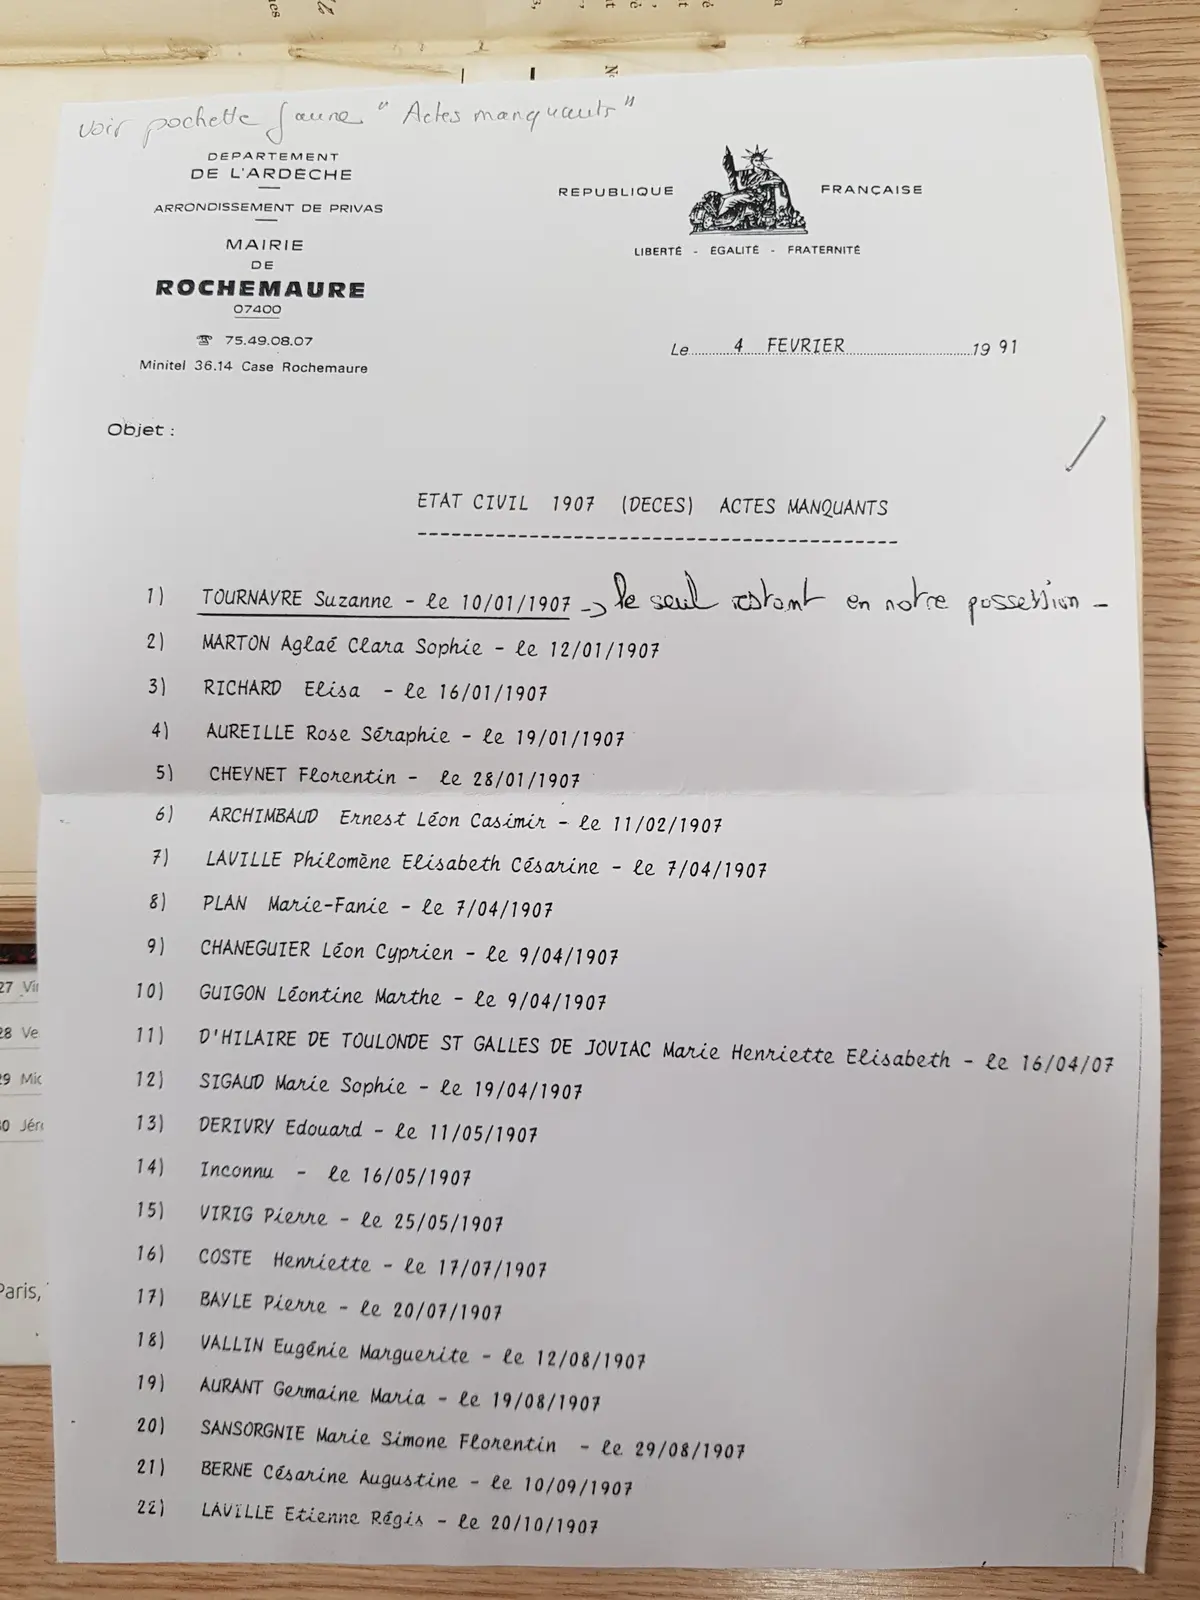 voir pochette jaune "Actes manquants"
DEPARTEMENT
DE L'ARDÈCHE
ARRONDISSEMENT DE PRIVAS
MAIRIE
DE
ROCHEMAURE
07400
☎ 75.49.08.07
Minitel 36.14 Case Rochemaure
REPUBLIQUE FRANÇAISE
LIBERTÉ - EGALITÉ - FRATERNITÉ
Le 4 FEVRIER 19 91
Objet :
ETAT CIVIL 1907 (DECES) ACTES MANQUANTS
1) TOURNAYRE Suzanne - le 10/01/1907 -> le seul restant en notre possession -
2) MARTON Aglaé Clara Sophie - le 12/01/1907
3) RICHARD Elisa - le 16/01/1907
4) AUREILLE Rose Séraphie - le 19/01/1907
5) CHEYNET Florentin - le 28/01/1907
6) ARCHIMBAUD Ernest Léon Casimir - le 11/02/1907
7) LAVILLE Philomène Elisabeth Césarine - le 7/04/1907
8) PLAN Marie-Fanie - le 7/04/1907
9) CHANEGUIER Léon Cyprien - le 9/04/1907
10) GUIGON Léontine Marthe - le 9/04/1907
11) D'HILAIRE DE TOULONDE ST GALLES DE JOVIAC Marie Henriette Elisabeth - le 16/04/07
12) SIGAUD Marie Sophie - le 19/04/1907
13) DERIVRY Edouard - le 11/05/1907
14) Inconnu - le 16/05/1907
15) VIRIG Pierre - le 25/05/1907
16) COSTE Henriette - le 17/07/1907
17) BAYLE Pierre - le 20/07/1907
18) VALLIN Eugénie Marguerite - le 12/08/1907
19) AURANT Germaine Maria - le 19/08/1907
20) SANSORGNIE Marie Simone Florentin - le 29/08/1907
21) BERNE Césarine Augustine - le 10/09/1907
22) LAVILLE Etienne Régis - le 20/10/1907
27 Vi
28 Ve
29 Mic
30 Jér
Paris,